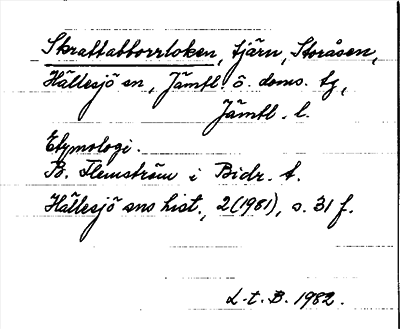 Skrattabborrloken, tjärn, Storåsen,
Hällesjö sn, Jämtl. ö. doms. tg,
Jämtl. l.
Etymologi.
B. Flemström i Bidr. t.
Hällesjö sns hist., 2 (1981), s. 31 f.
L.t.B. 1982.